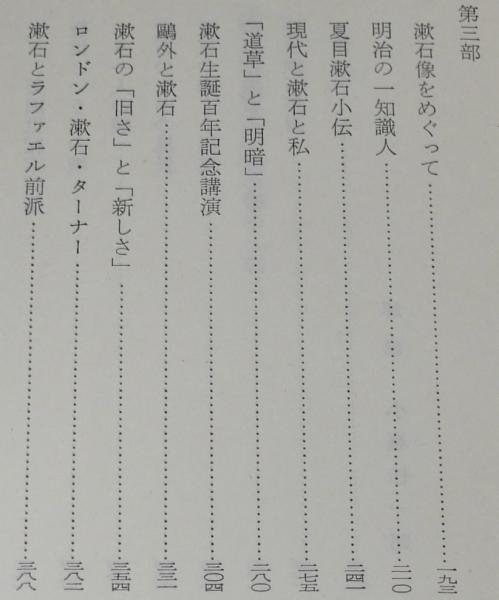 第三部
漱石像をめぐって……………………………一九三
明治の一知識人……………………………二一〇
夏目漱石小伝……………………………二四一
現代と漱石と私……………………………二七五
「道草」と「明暗」……………………………二八〇
漱石生誕百年記念講演……………………………三〇四
鷗外と漱石……………………………三三一
漱石の「旧さ」と「新しさ」……………………………三五四
ロンドン・漱石・ターナー……………………………三八二
漱石とラファエル前派……………………………三八八